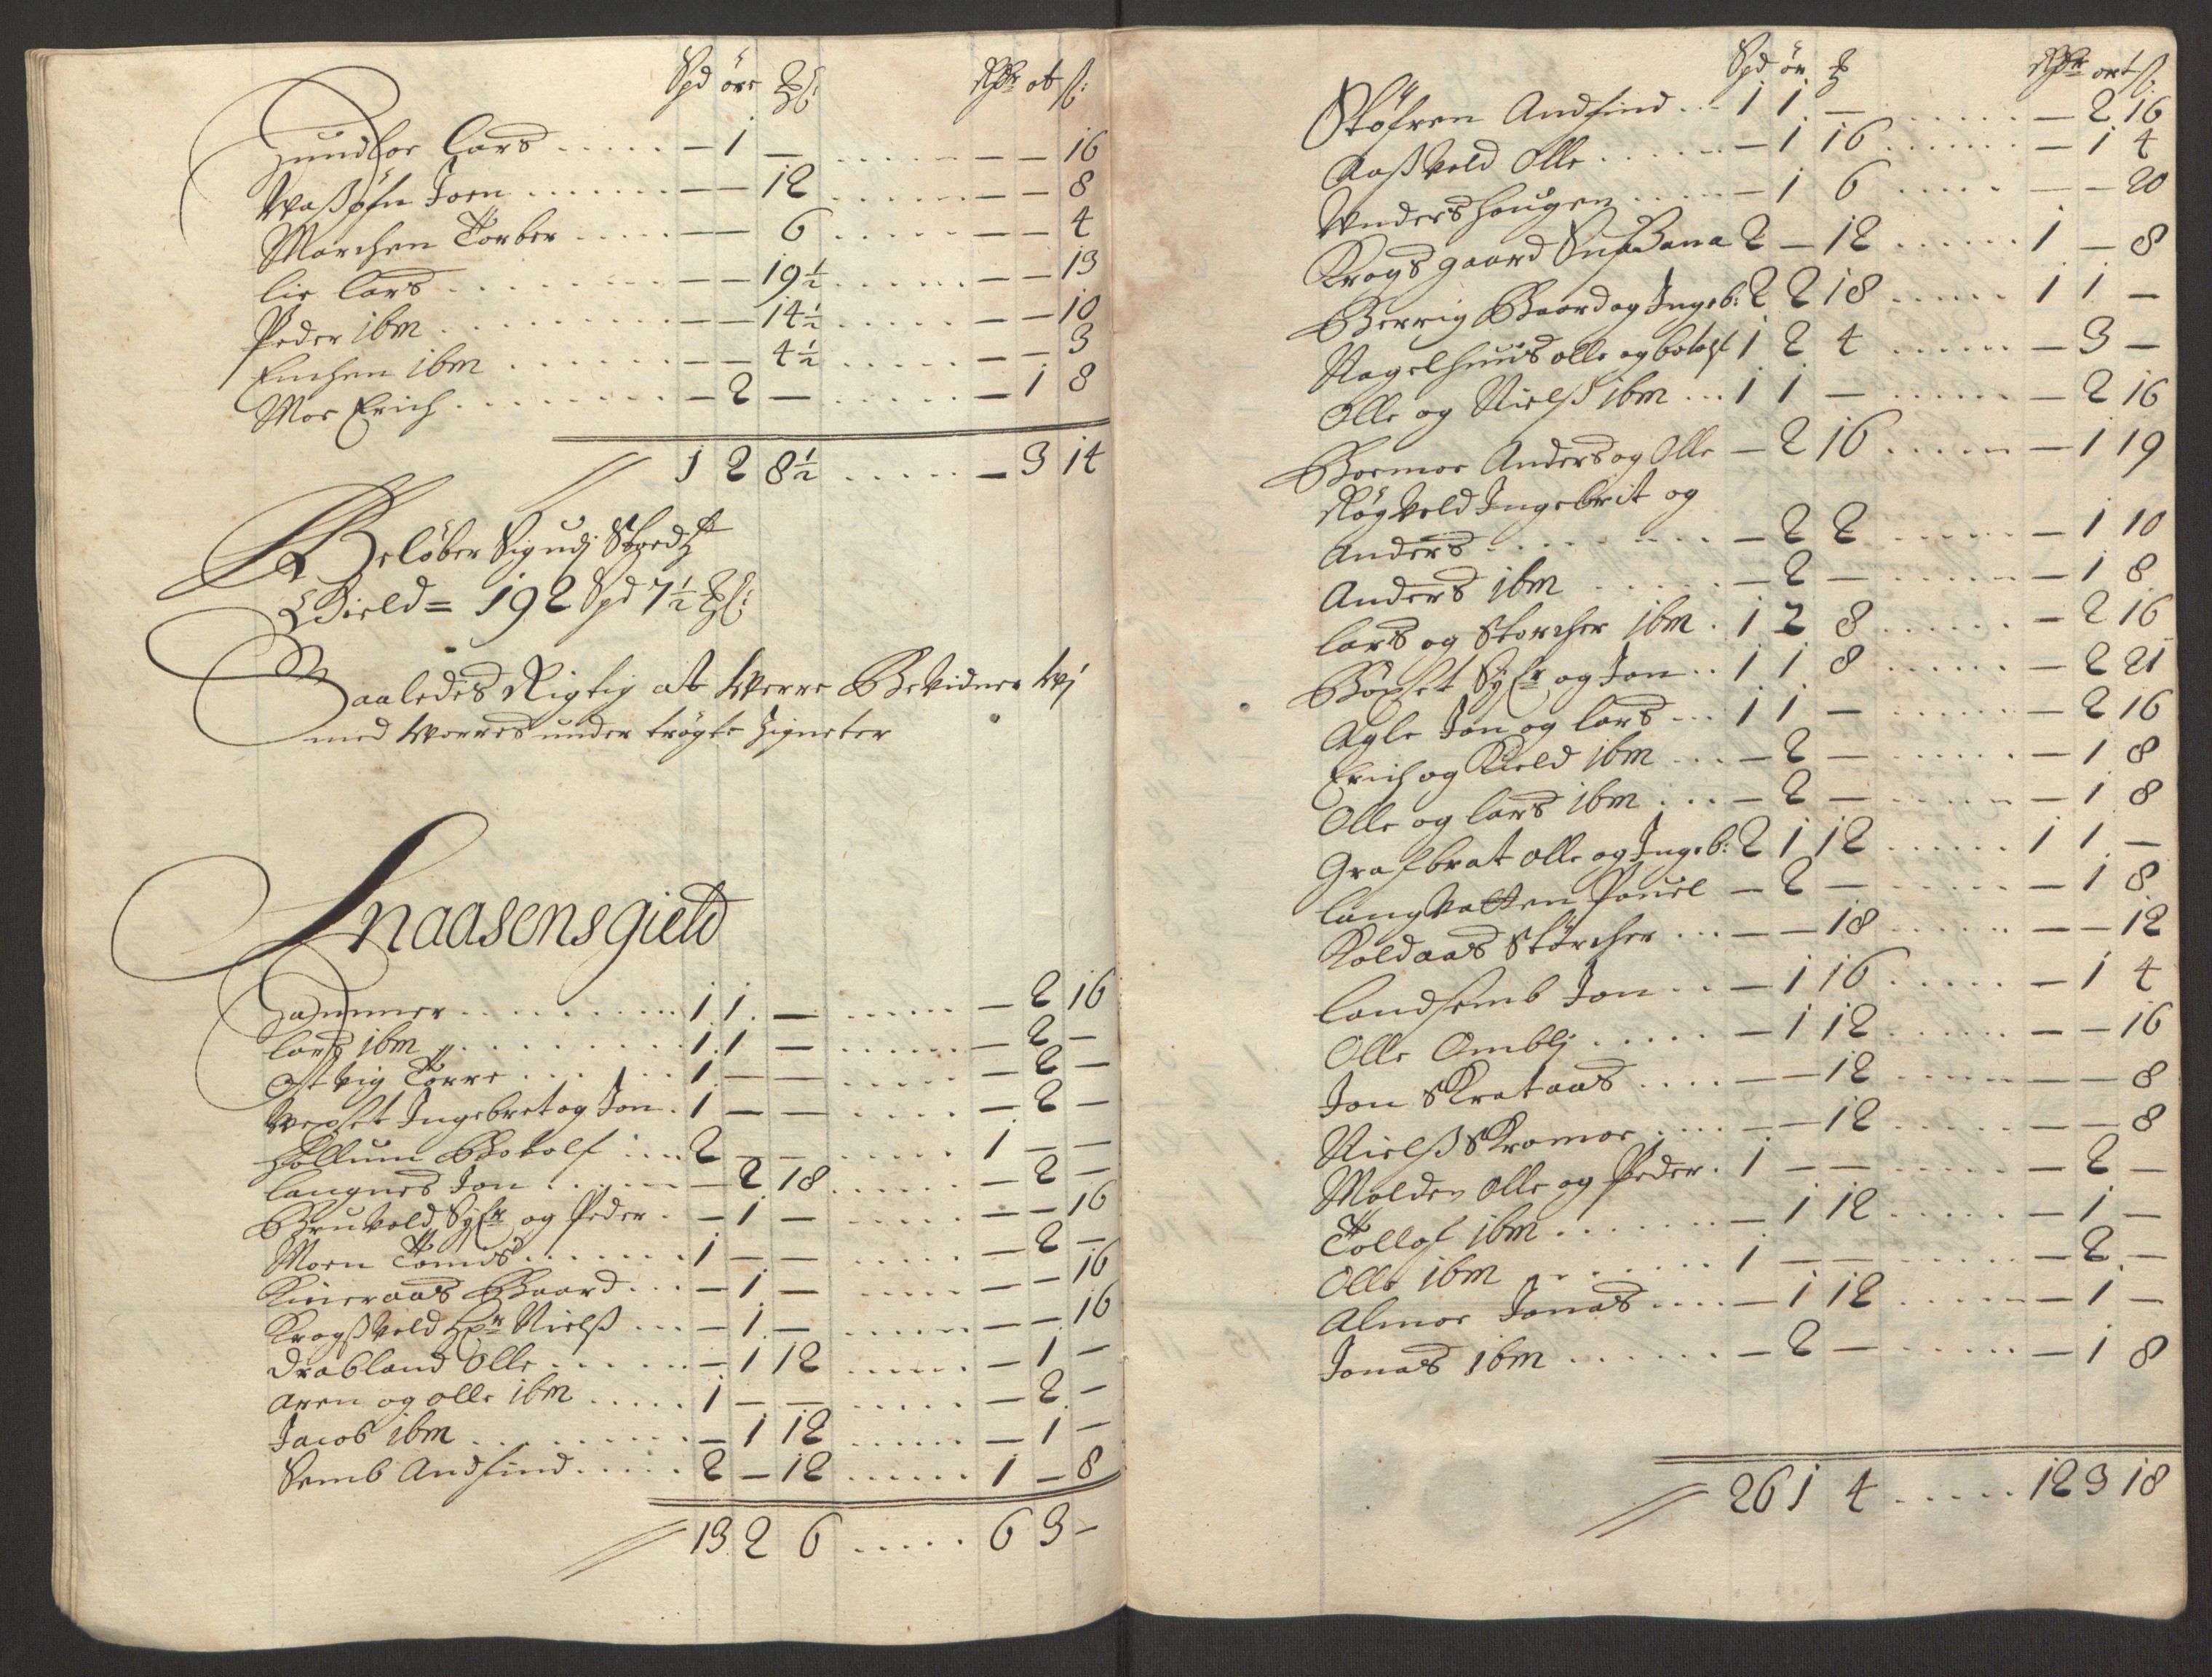 Spd öre ₰: Rdr ort ß:
Hundloe Lars ..... – 1 – ....... – – 16
Waßøfn Joen ....... – – 12 ....... – – 8
Marchen Torber ..... – – 6 ...... – – 4
lie Lars ......... – – 19½ ...... – – 13
Peder ibm ......... – – 14½ ..... – – 10
Enchen ibm ....... – – 4½ ...... – – 3
Moe Erich ........ – 2 – ...... – 1 8
1 2 8½ ..... – 3 14
Beløber Sig udj
Gield = 192 Spd 7½ ₰:
Saaledes Rigtig at Werre Bevidner wj
med worres under trøgte Zigneter
Snaasens gield
Hammer ......... 1 1 – ...... – 2 16
Lars ibm ......... 1 1 – ...... – 2 –
Ostvig Torre ....... 1 – – ...... – 2 –
Wegset Ingebret og Jon . 1 – – ...... – 2 –
Hollum Botolf .... 2 – – ...... 1 – –
langnes Jon ...... – 2 18 ...... – 2 –
Bruvold Sifr og Peder . – 1 – ...... – – 16
Moen Tomas ....... 1 – – ...... – 2 –
Kineraas Baard ... – 1 – ...... – – 16
Krogßvold Hr Nielß ... – 1 – ...... – – 16
Drabland Olle ...... – 1 12 ...... – 1 –
Aren og olle ibm ..... 1 – – ...... – 2 –
Jacob ibm ......... – 1 12 ...... – 1 –
Semb Andfind ..... 2 – 12 ...... 1 – 8
13 2 6 ..... 6 3 –
Spd ör ₰ Rdr ort ß:
Støfren Andfind ... 1 1 – ...... – 2 16
Aaßvold Olle ...... – 1 16 ...... – 1 4
Undershougen ..... – 1 6 ..... – – 20
Krogsgaard 2 – 12 ...... 1 – 8
Berrig Baard og Ingeb: 2 2 18 ...... 1 1 –
Nagelhuus olle og botolf 1 2 4 ...... – 3 –
Olle og Nielß ibm ... 1 1 – ...... – 2 16
Boemoe Anders og Olle – 2 16 ...... – 1 19
Røgvold Ingebrit og
Anders ......... – 2 2 ...... – 1 10
Anders ibm ...... – 2 – ...... – 1 8
lars og Storcher ibm . 1 2 8 ...... – 2 16
Bøgset Sifr og Jon .. 1 1 8 ...... – 2 21
Agle Jon og lars ... 1 1 – ...... – 2 16
Erich og Kield ibm ... – 2 – ...... – 1 8
Olle og lars ibm ... – 2 – ...... – 1 8
Grafbrat olle og Ingeb: 2 1 12 ...... 1 1 –
langvatten Pouel – 2 – ...... – 1 8
Koldaas Størcher ... – – 18 ...... – – 12
landsemb Jon .. – 1 16 ...... – 1 4
Olle Ombli ..... – 1 12 ...... – – 16
Jon Skrataas .... – – 12 ...... – – 8
Nielß Kromoe .... – – 12 ...... – – 8
Molden olle og Peder . 1 – – ...... – 2 –
Tollof ibm ....... – 1 12 ...... – 1 –
Olle ibm ....... 1 – – ...... – 2 –
Almoe Jonas .... – 1 12 ...... – 1 –
Jonas ibm ...... – 2 – ...... – 1 8
26 1 4 ..... 12 3 18